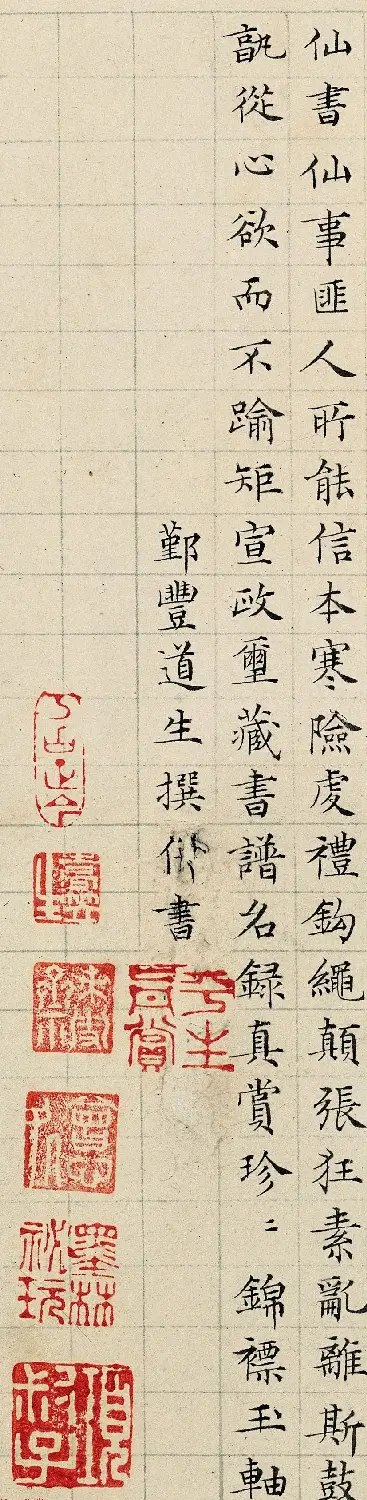 仙書仙事匪人所能信本寒險虔禮鉤繩顛張狂素亂離斯鼓
孰從心欲而不踰矩宣政璽藏書譜名録真賞珍〻錦褾玉軸
鄞豐道生撰併書
平生真賞
墨林祕玩